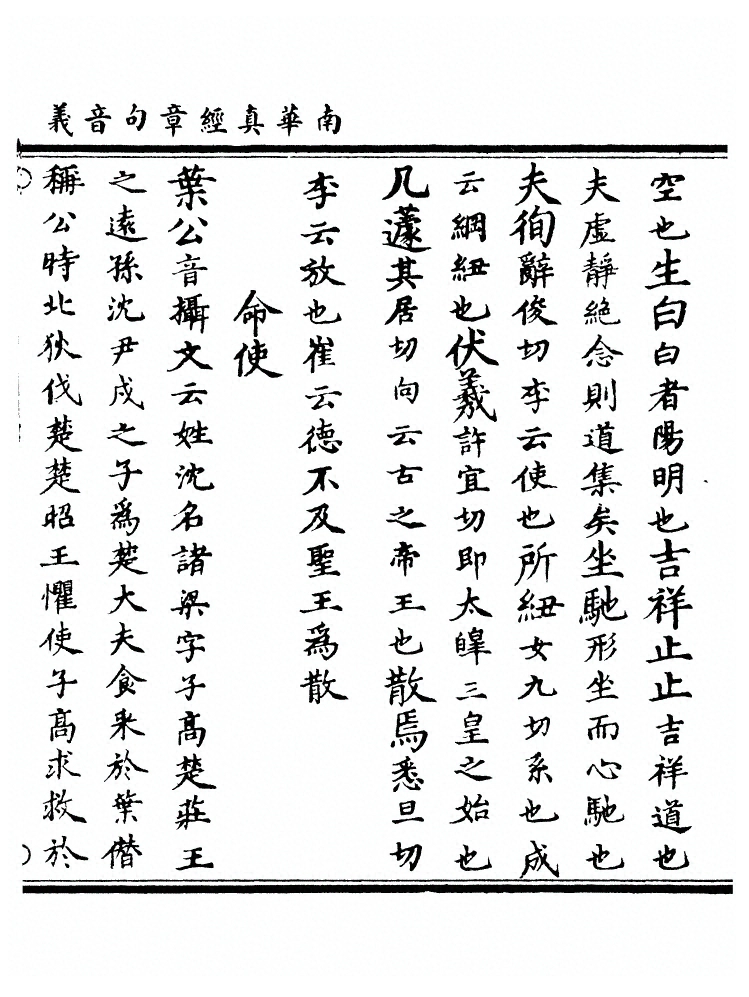 南華真經章句音義
空也生白白者陽明也吉祥止止吉祥道也
夫虛靜絕念則道集矣坐馳形坐而心馳也
夫徇辭俊切李云使也所紐女九切系也成
云綱紐也伏羲許宜切即太皥三皇之始也
凡蘧其居切向云古之帝王也散焉悉旦切
李云放也崔云德不及聖王爲散
命使
葉公音攝文云姓沈名諸梁字子高楚莊王
之遠孫沈尹戍之子爲楚大夫食采於葉僣
稱公時北狄伐楚楚昭王懼使子高求救於